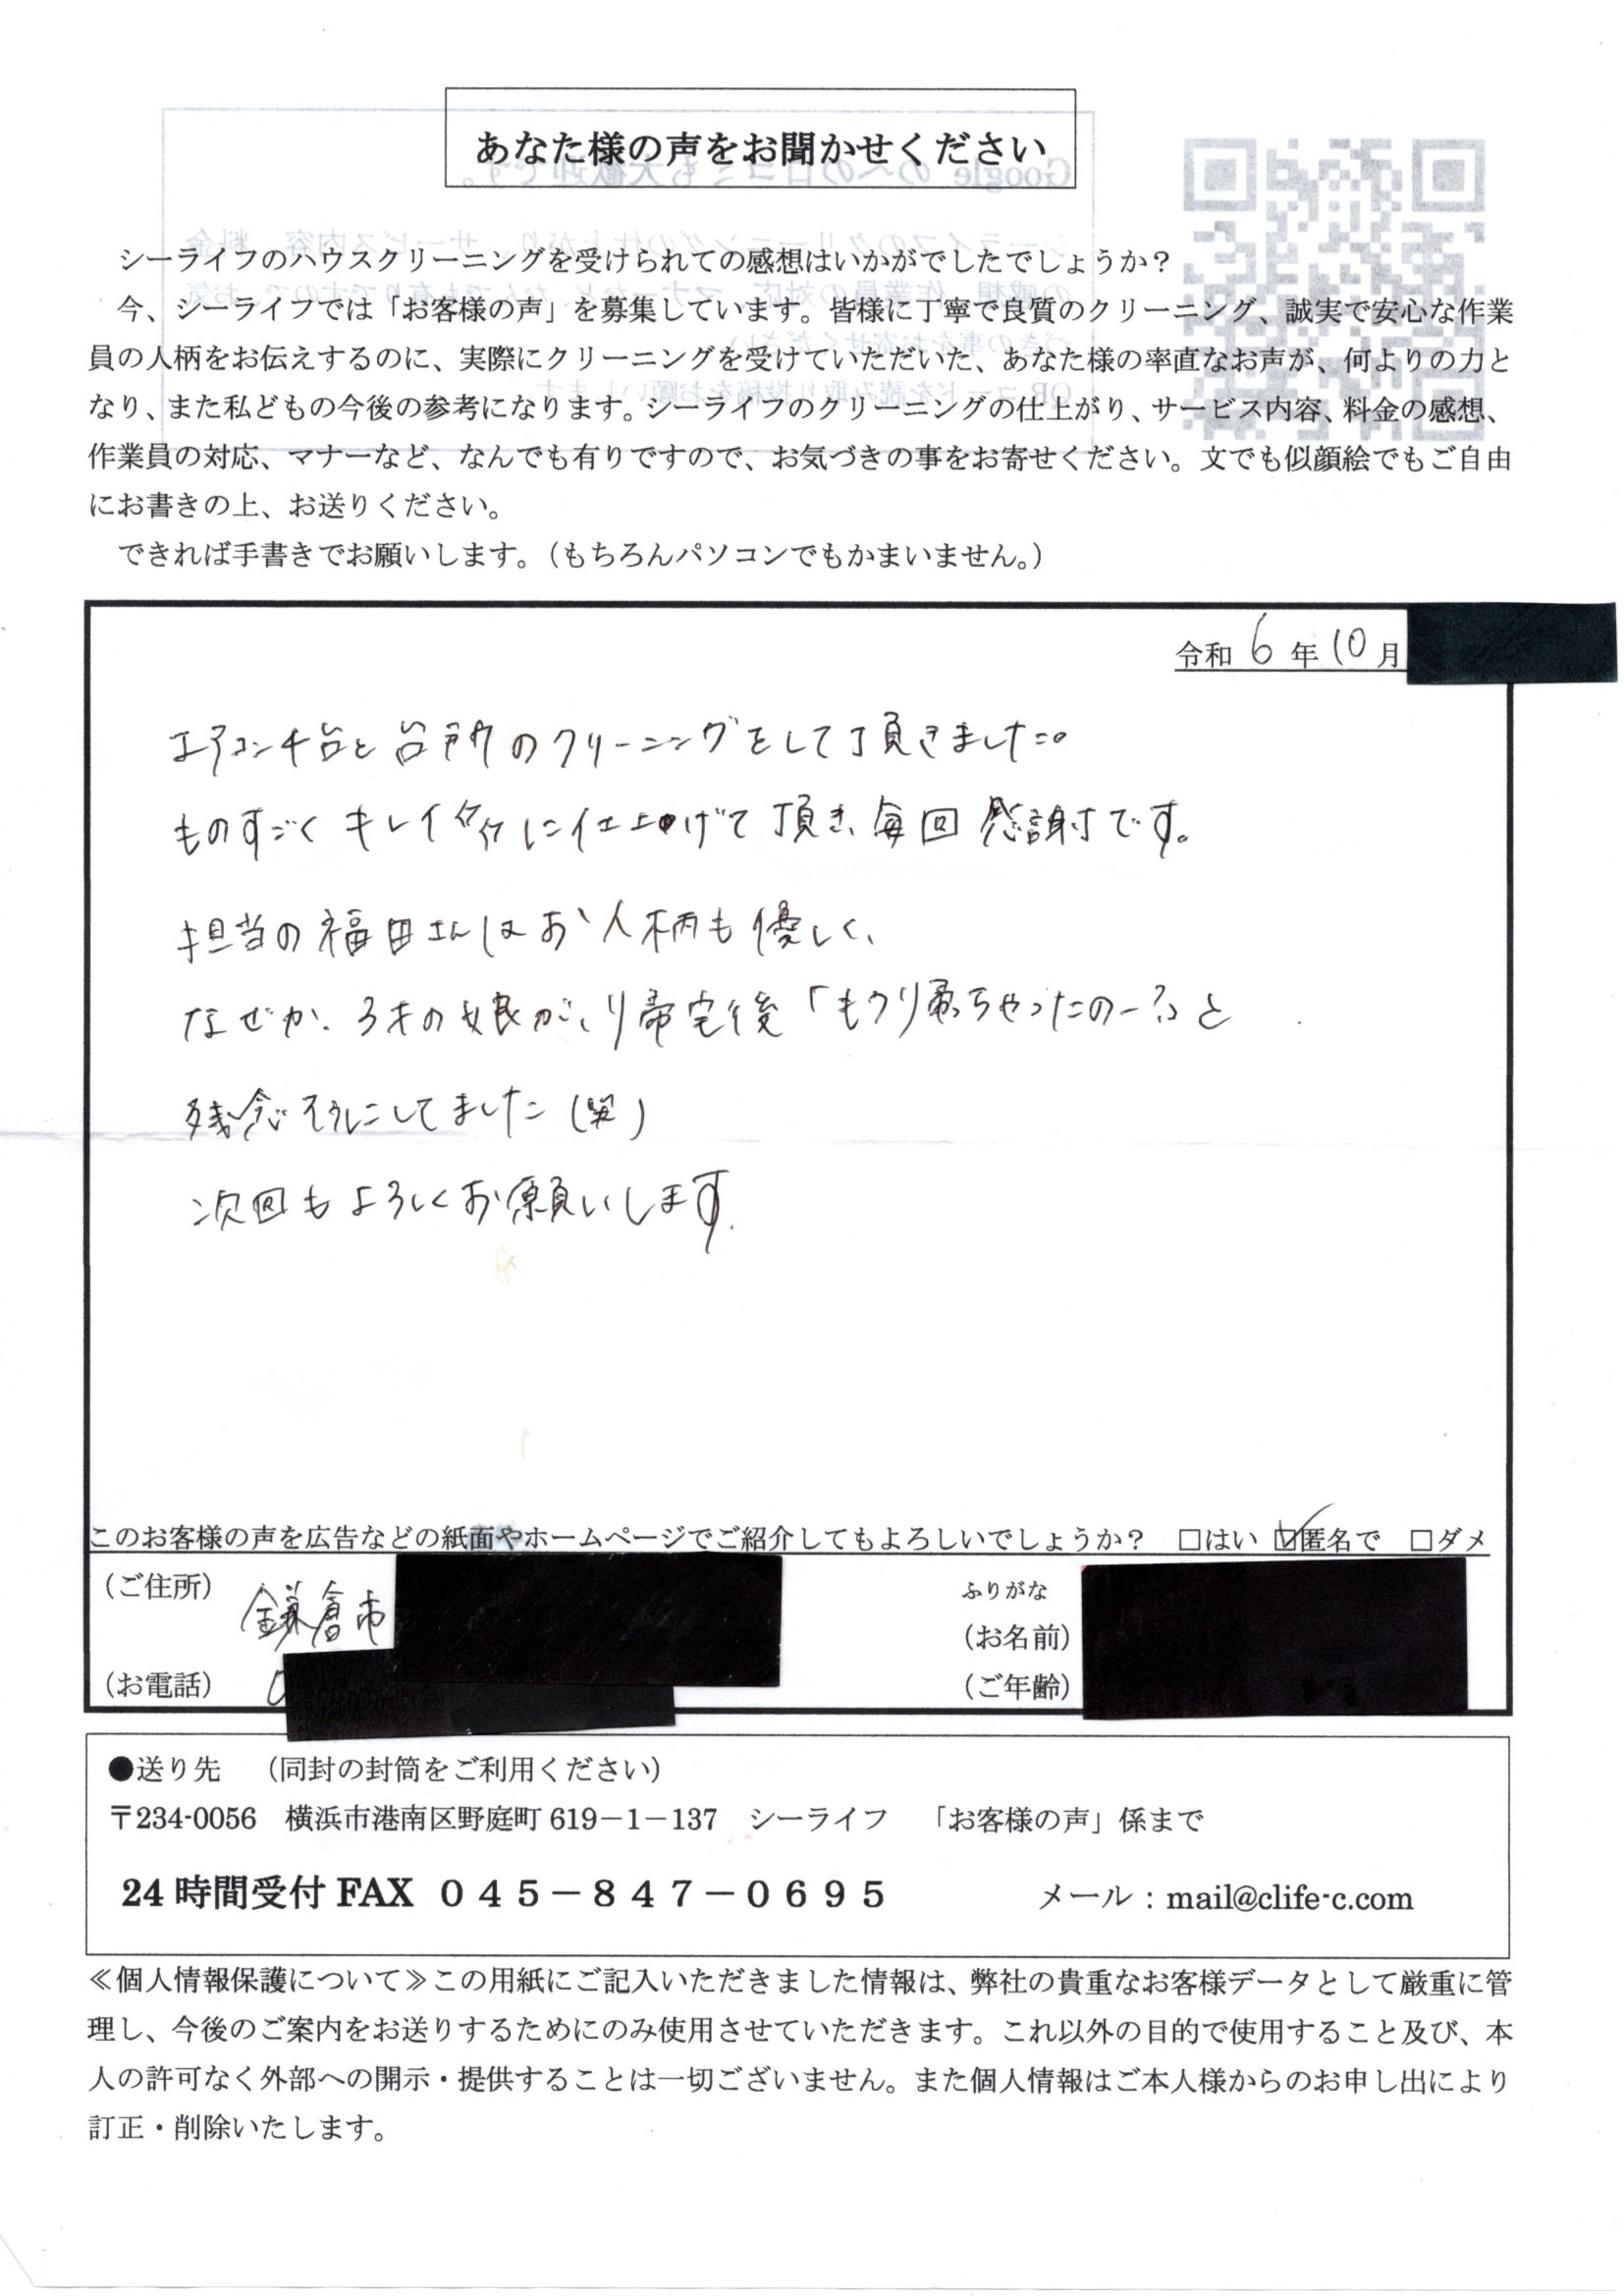 あなた様の声をお聞かせください
シーライフのハウスクリーニングを受けられての感想はいかがでしたでしょうか？
今、シーライフでは「お客様の声」を募集しています。皆様に丁寧で良質のクリーニング、誠実で安心な作業
員の人柄をお伝えするのに、実際にクリーニングを受けていただいた、あなた様の率直なお声が、何よりの力と
なり、また私どもの今後の参考になります。シーライフのクリーニングの仕上がり、サービス内容、料金の感想、
作業員の対応、マナーなど、なんでも有りですので、お気づきの事をお寄せください。文でも似顔絵でもご自由
にお書きの上、お送りください。
できれば手書きでお願いします。（もちろんパソコンでもかまいません。）
令和 6 年 10 月
エアコン千台と台所のクリーニングをして頂きました。
ものすごくキレイに仕上げて頂き、毎回感謝です。
担当の福田さんはお人柄も優しく、
なぜか、3才の娘が、帰宅後「もう帰っちゃったのー？」と
残念そうにしてました（笑）
次回もよろしくお願いします。
このお客様の声を広告などの紙面やホームページでご紹介してもよろしいでしょうか？ □はい ☑匿名で □ダメ
（ご住所） 鎌倉市
ふりがな
（お名前）
（お電話） 0
（ご年齢）
●送り先 （同封の封筒をご利用ください）
〒234-0056 横浜市港南区野庭町 619－1－137 シーライフ 「お客様の声」係まで
24 時間受付 FAX ０４５－８４７－０６９５ メール：mail@clife-c.com
≪個人情報保護について≫この用紙にご記入いただきました情報は、弊社の貴重なお客様データとして厳重に管
理し、今後のご案内をお送りするためにのみ使用させていただきます。これ以外の目的で使用すること及び、本
人の許可なく外部への開示・提供することは一切ございません。また個人情報はご本人様からのお申し出により
訂正・削除いたします。